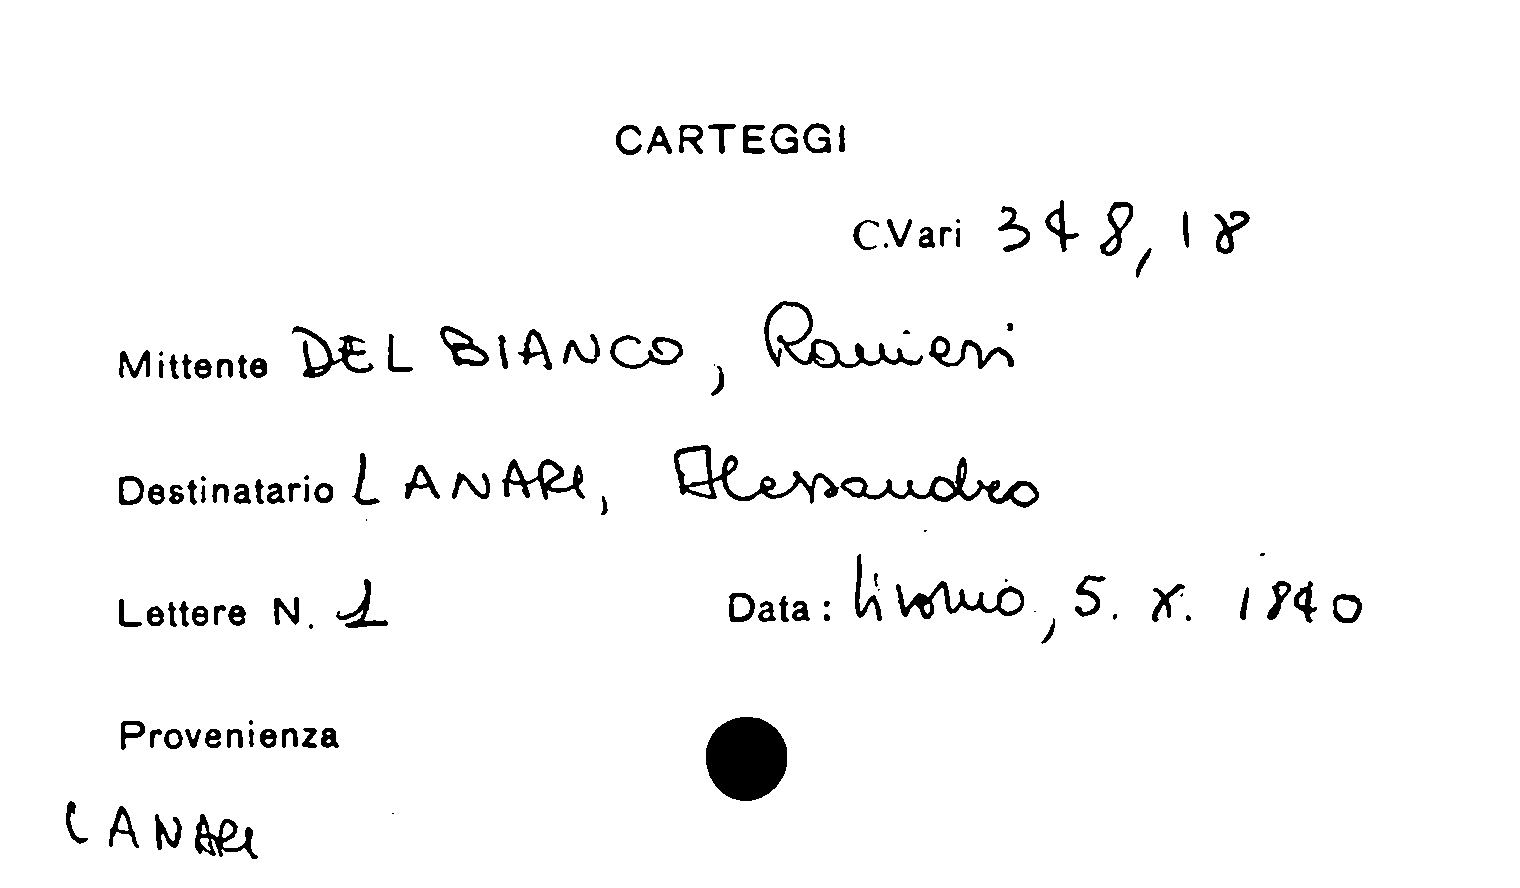 CARTEGGI
C.Vari 348,18
Mittente DEL BIANCO, Ranieri
Destinatario LANARI, Alessandro
Lettere N. 1 Data: Livorno, 5. X. 1840
Provenienza
LANARI